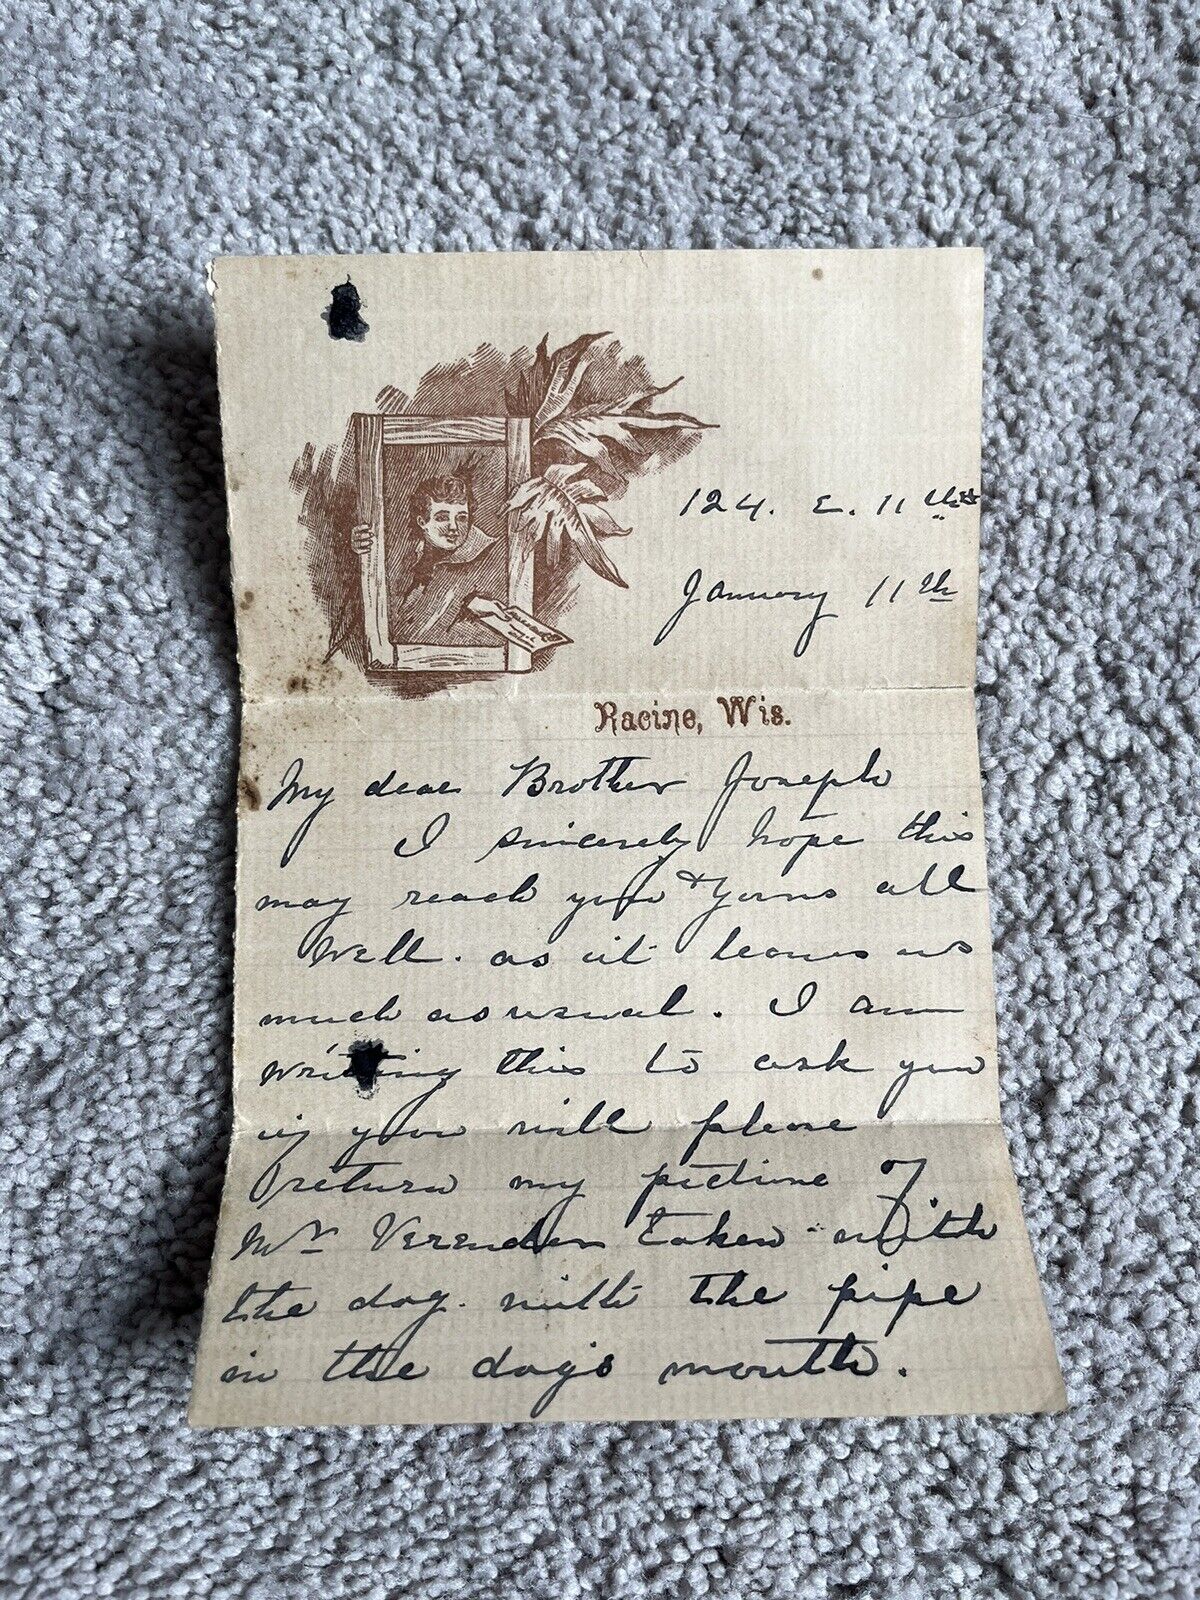 124. E. 11th St
January 11th
Racine, Wis.
My dear Brother Joseph
I sincerely hope this
may reach you & yours all
well. as it leaves us
much as usual. I am
writing this to ask you
if you will please
return my picture of
Mr taken with
the dog. with the pipe
in the dog's mouth.